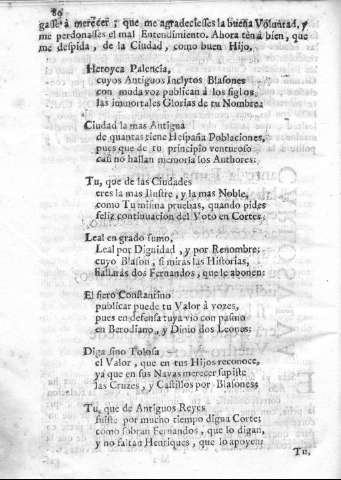 80
gasse à merecer; que me agradeciesses la buena Voluntad, y
me perdonasses el mal Entendimiento. Ahora ten à bien, que
me despida, de la Ciudad, como buen Hijo.
Heroyca Palencia,
cuyos Antiguos Inclytos Blasones
con muda voz publican à los siglos
las immortales Glorias de tu Nombre:
Ciudad la mas Antigua
de quantas tiene Hespaña Poblaciones,
pues que de tu principio venturoso
casi no hallan memoria los Authores:
Tu, que de las Ciudades
eres la mas Ilustre, y la mas Noble,
como Tu misma pruebas, quando pides
feliz continuacion del Voto en Cortes:
Leal en grado sumo,
Leal por Dignidad, y por Renombre;
cuyo Blason, si miras las Historias,
hallarás dos Fernandos, que le abonen:
El fiero Constantino
publicar puede tu Valor à vozes,
pues en defensa tuya viò con pasmo
en Berodiano, y Dinio dos Leones:
Diga sino Tolosa
el Valor, que en tus Hijos reconoce,
ya que en sus Navas merecer supiste
las Cruzes, y Castillos por Blasones;
Tu, que de Antiguos Reyes
fuiste por mucho tiempo digna Corte;
como sobran Fernandos, que lo digan,
y no faltan Henriques, que lo apoyen:
Tu,